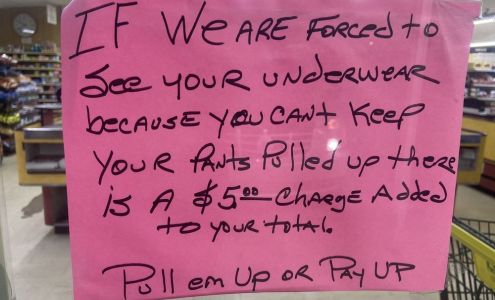 IF WE ARE FORCED to
See YOUR UNDERWEAR
because YOU CANT Keep
YOUR PANTS Pulled up there
is A $5.00 CHARGE Added
to YOUR total.
Pull em Up OR PAY UP